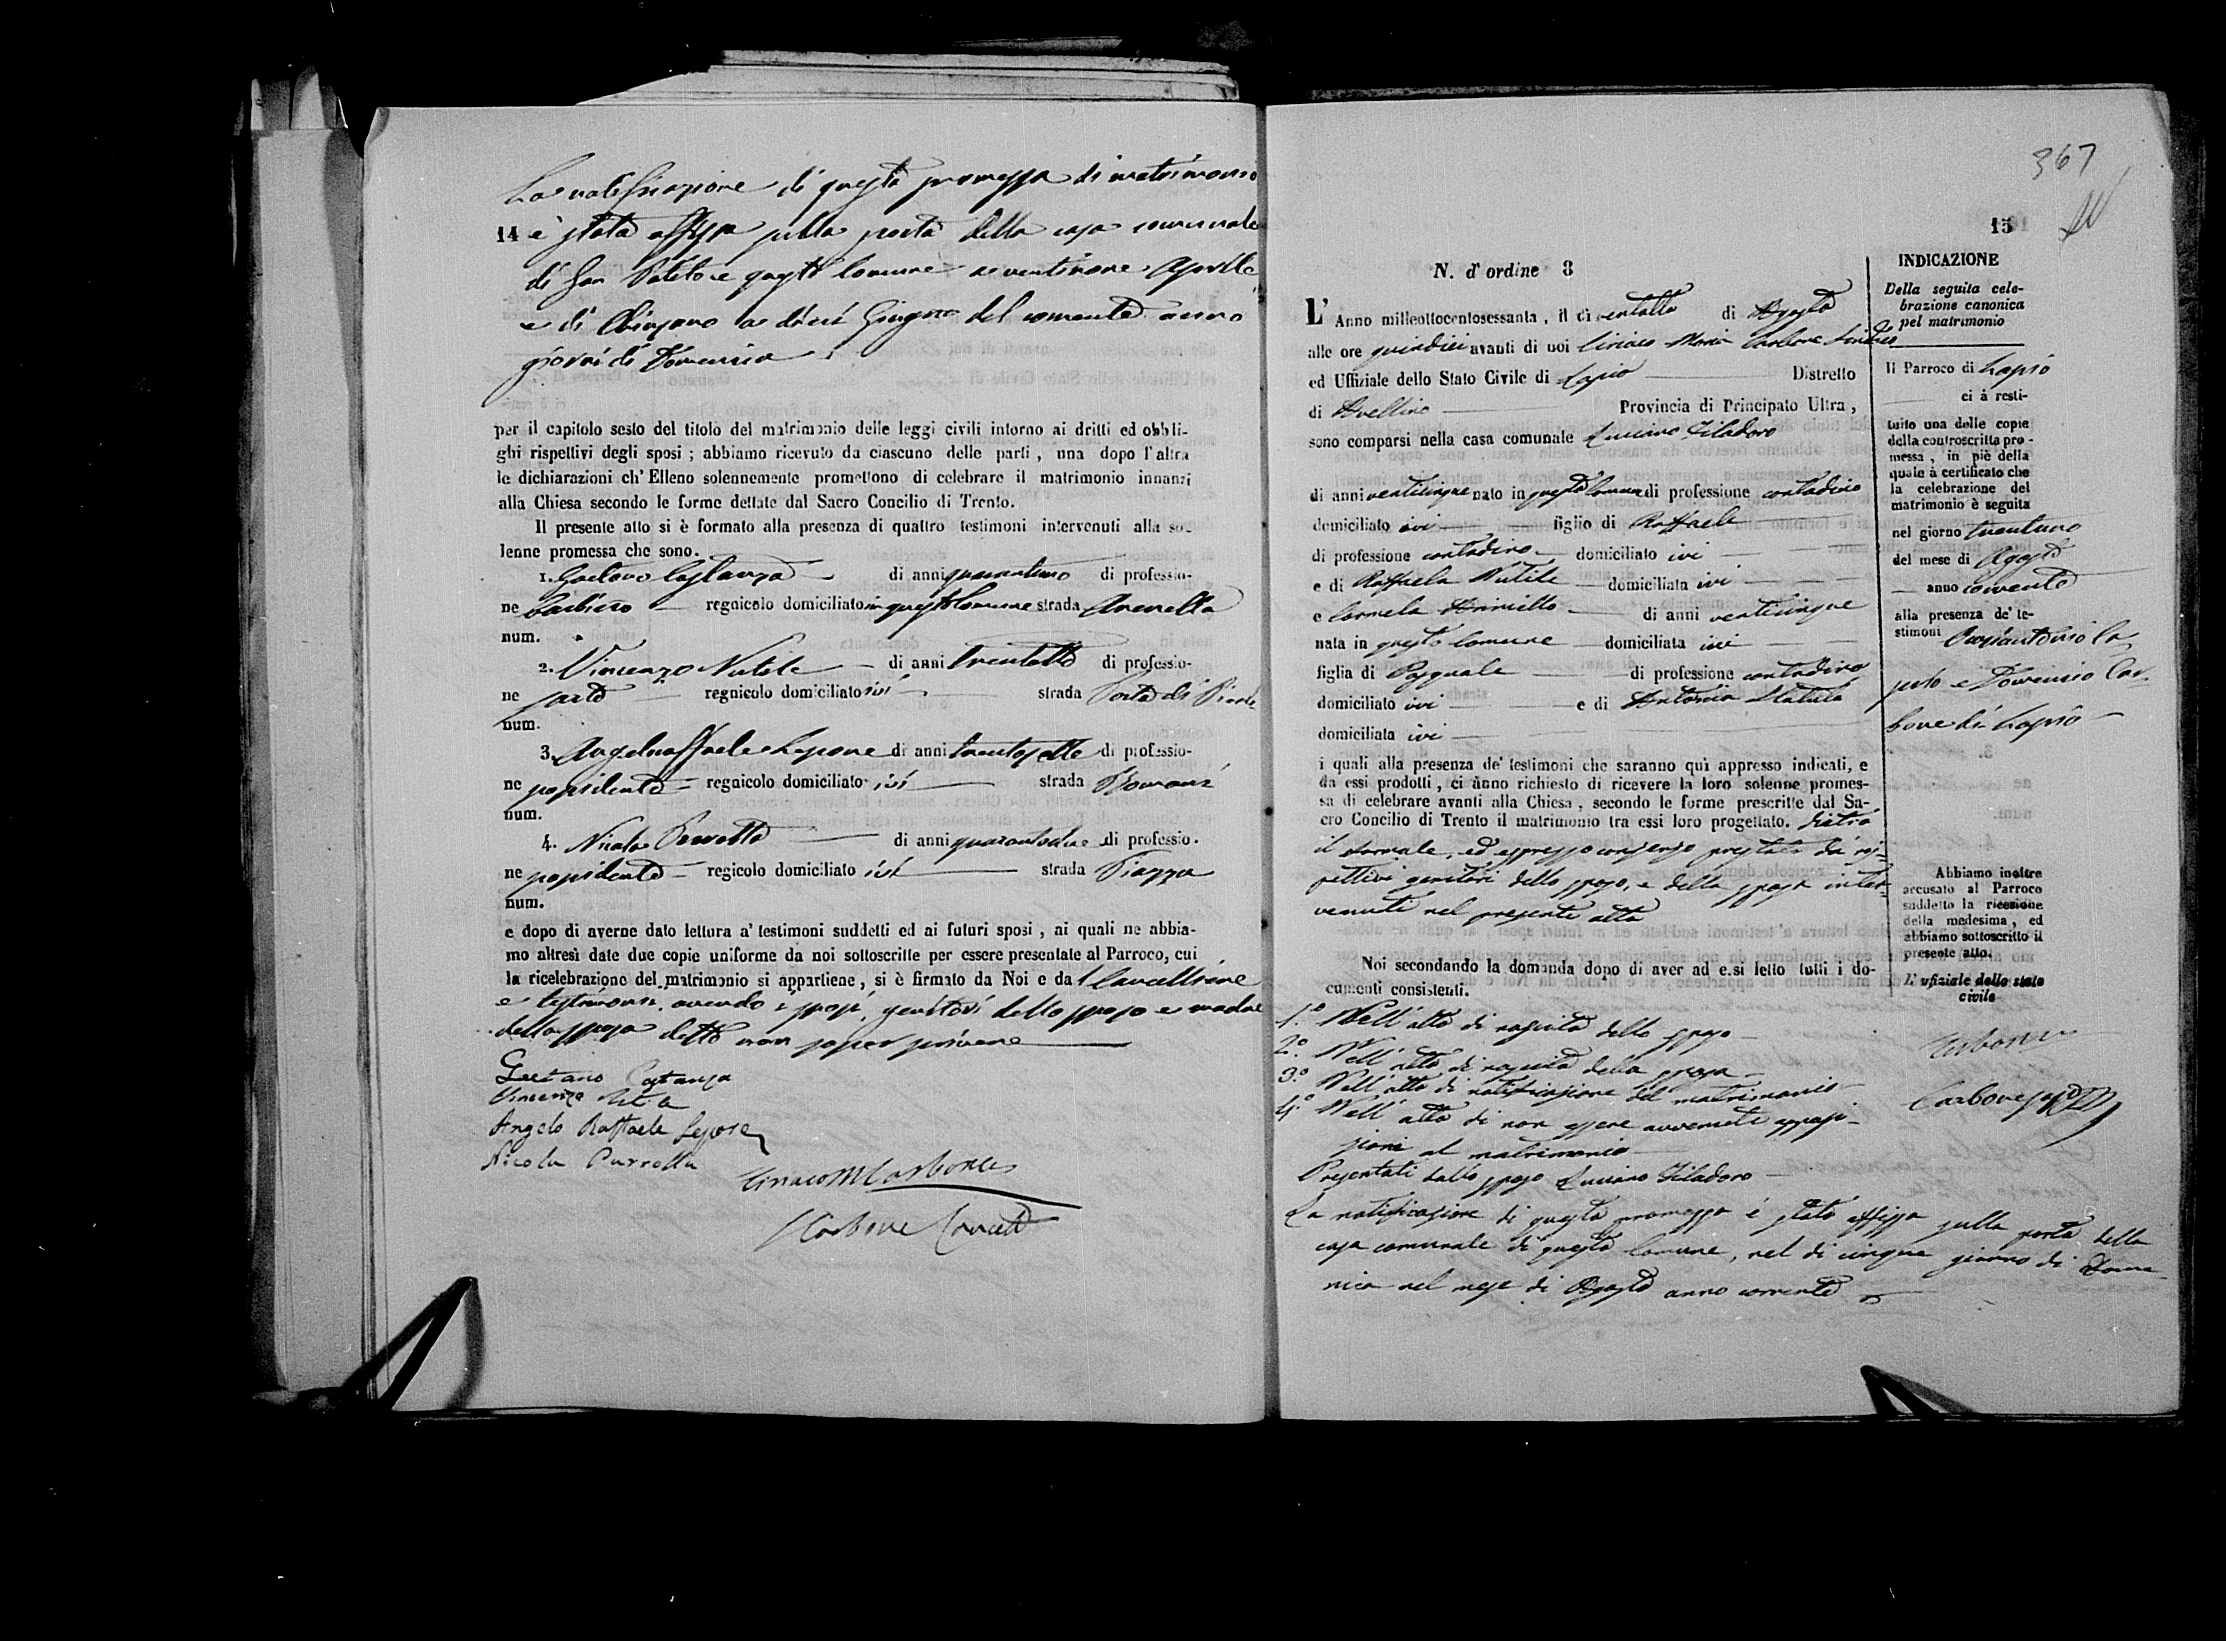 La notificazione di questa promessa di matrimonio
14 è stata affissa sulla porta della casa comunale
di San Potito e questo Comune a ventinove Aprile
e di Chiusano a dieci Giugno del corrente anno
giorni di Domenica
per il capitolo sesto del titolo del matrimonio delle leggi civili intorno ai dritti ed obbli-
ghi rispettivi degli sposi ; abbiamo ricevuto da ciascuno delle parti , una dopo l'altra
le dichiarazioni ch' Elleno solennemente promettono di celebrare il matrimonio innanzi
alla Chiesa secondo le forme dettate dal Sacro Concilio di Trento.
Il presente atto si è formato alla presenza di quattro testimoni intervenuti alla so-
lenne promessa che sono.
1. Gaetano Castanza di anni quarantuno di professio-
ne barbiero regnicolo domiciliato in questo Comune strada Arenella
num.
2. Vincenzo Nutile di anni trentotto di professio-
ne sarto regnicolo domiciliato ivi strada Porta di
num.
3. Angelraffaele Lepore di anni trentasette di professio-
ne possidente regnicolo domiciliato ivi strada
num.
4. Nicola Perrotta di anni di professio.
ne possidente regicolo domiciliato ivi strada Piazza
num.
e dopo di averne dato lettura a' testimoni suddetti ed ai futuri sposi , ai quali ne abbia-
mo altresì date due copie uniforme da noi sottoscritte per essere presentate al Parroco, cui
la ricelebrazione del matrimonio si appartiene , si è firmato da Noi e dal Cancelliere
e testimoni avendo i sposi, genitori dello sposo e madre
della sposa detto non saper scrivere
Gaetano Castanza
Vincenzo Nutile
Angelo Raffaele Lepore
Nicola Perrotta
Ciriaco M Carbone
Carbone Cancell
367
15
N. d' ordine 8
L' Anno milleottocentosessanta , il dì ventotto di Agosto
alle ore quindici avanti di noi Ciriaco Maria Carbone Sindaco
ed Uffiziale dello Stato Civile di Lapio Distretto
di Avellino Provincia di Principato Ultra ,
sono comparsi nella casa comunale Luciano Filadoro
di anni venticinque nato in questo Comune di professione contadino
domiciliato ivi figlio di Raffaele
di professione contadino domiciliato ivi
e di Raffaela Nutile domiciliata ivi
e Carmela di anni venticinque
nata in questo Comune domiciliata ivi
figlia di Pasquale di professione contadino
domiciliato ivi e di Antonia
domiciliata ivi
i quali alla presenza de' testimoni che saranno quì appresso indicati, e
da essi prodotti , ci ànno richiesto di ricevere la loro solenne promes-
sa di celebrare avanti alla Chiesa , secondo le forme prescritte dal Sa-
cro Concilio di Trento il matrimonio tra essi loro progettato. dietro
il formale, ed espresso consenso prestato da' ris-
pettivi genitori dello sposo, e della sposa inter-
venuti nel presente atto
Noi secondando la domanda dopo di aver ad essi letto tutti i do-
cumenti consistenti.
1.° Nell' atto di nascita dello sposo
2.° Nell' atto di nascita della sposa
3.° Nell' atto di notificazione del matrimonio
4.° Nell' atto di non essere avvenute opposi-
zioni al matrimonio
Presentati dallo sposo Luciano Filadoro
La notificazione di questa promessa è stata affissa sulla porta della
casa comunale di questo Comune, nel dì cinque giorno di Dome-
nica nel mese di Agosto anno corrente
INDICAZIONE
Della seguita cele-
brazione canonica
pel matrimonio
Il Parroco di Lapio
ci à resti-
tuito una delle copie
della controscritta pro-
messa , in piè della
quale à certificato che
la celebrazione del
matrimonio è seguita
nel giorno trentuno
del mese di Agosto
anno corrente
alla presenza de' te-
stimoni Ca-
puto e Domenico Car-
bone di Lapio
Abbiamo inoltre
accusato al Parroco
suddetto la ricezione
della medesima , ed
abbiamo sottoscritto il
presente atto.
L' ufiziale dello stato
civile
Carbone
Carbone